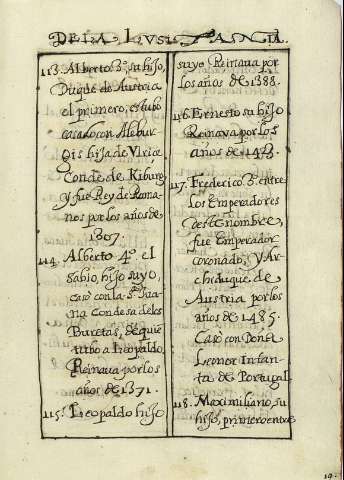 DE LA LUSITANIA.
113. Alberto 3º, su hijo,
Duque de Austria
el primero, estubo
casado con Alebur
gis hija de Vlrico,
Conde de Kiburg
y fue Rey de Roma
nos por los años de
1307.
114. Alberto 4º el
sabio, hijo suyo,
casò con la Sª. Jua
na Condesa de los
Buretas, de que
tubo a Leopaldo,
Reinava por los
años de 1371.
115. Leopaldo hijo
suyo Reinava por
los años de 1388.
116. Ernesto su hijo
Reinava por los
años de 14
117. Frederico 3º. entre
los Emperadores
de este nombre,
fue Emperador
coronado, y Ar
chiduque de
Austria por los
años de 1485.
Casò con Doña
Leonor Infan
ta de Portugal.
118. Maximiliano, su
hijo, primero entre
19.